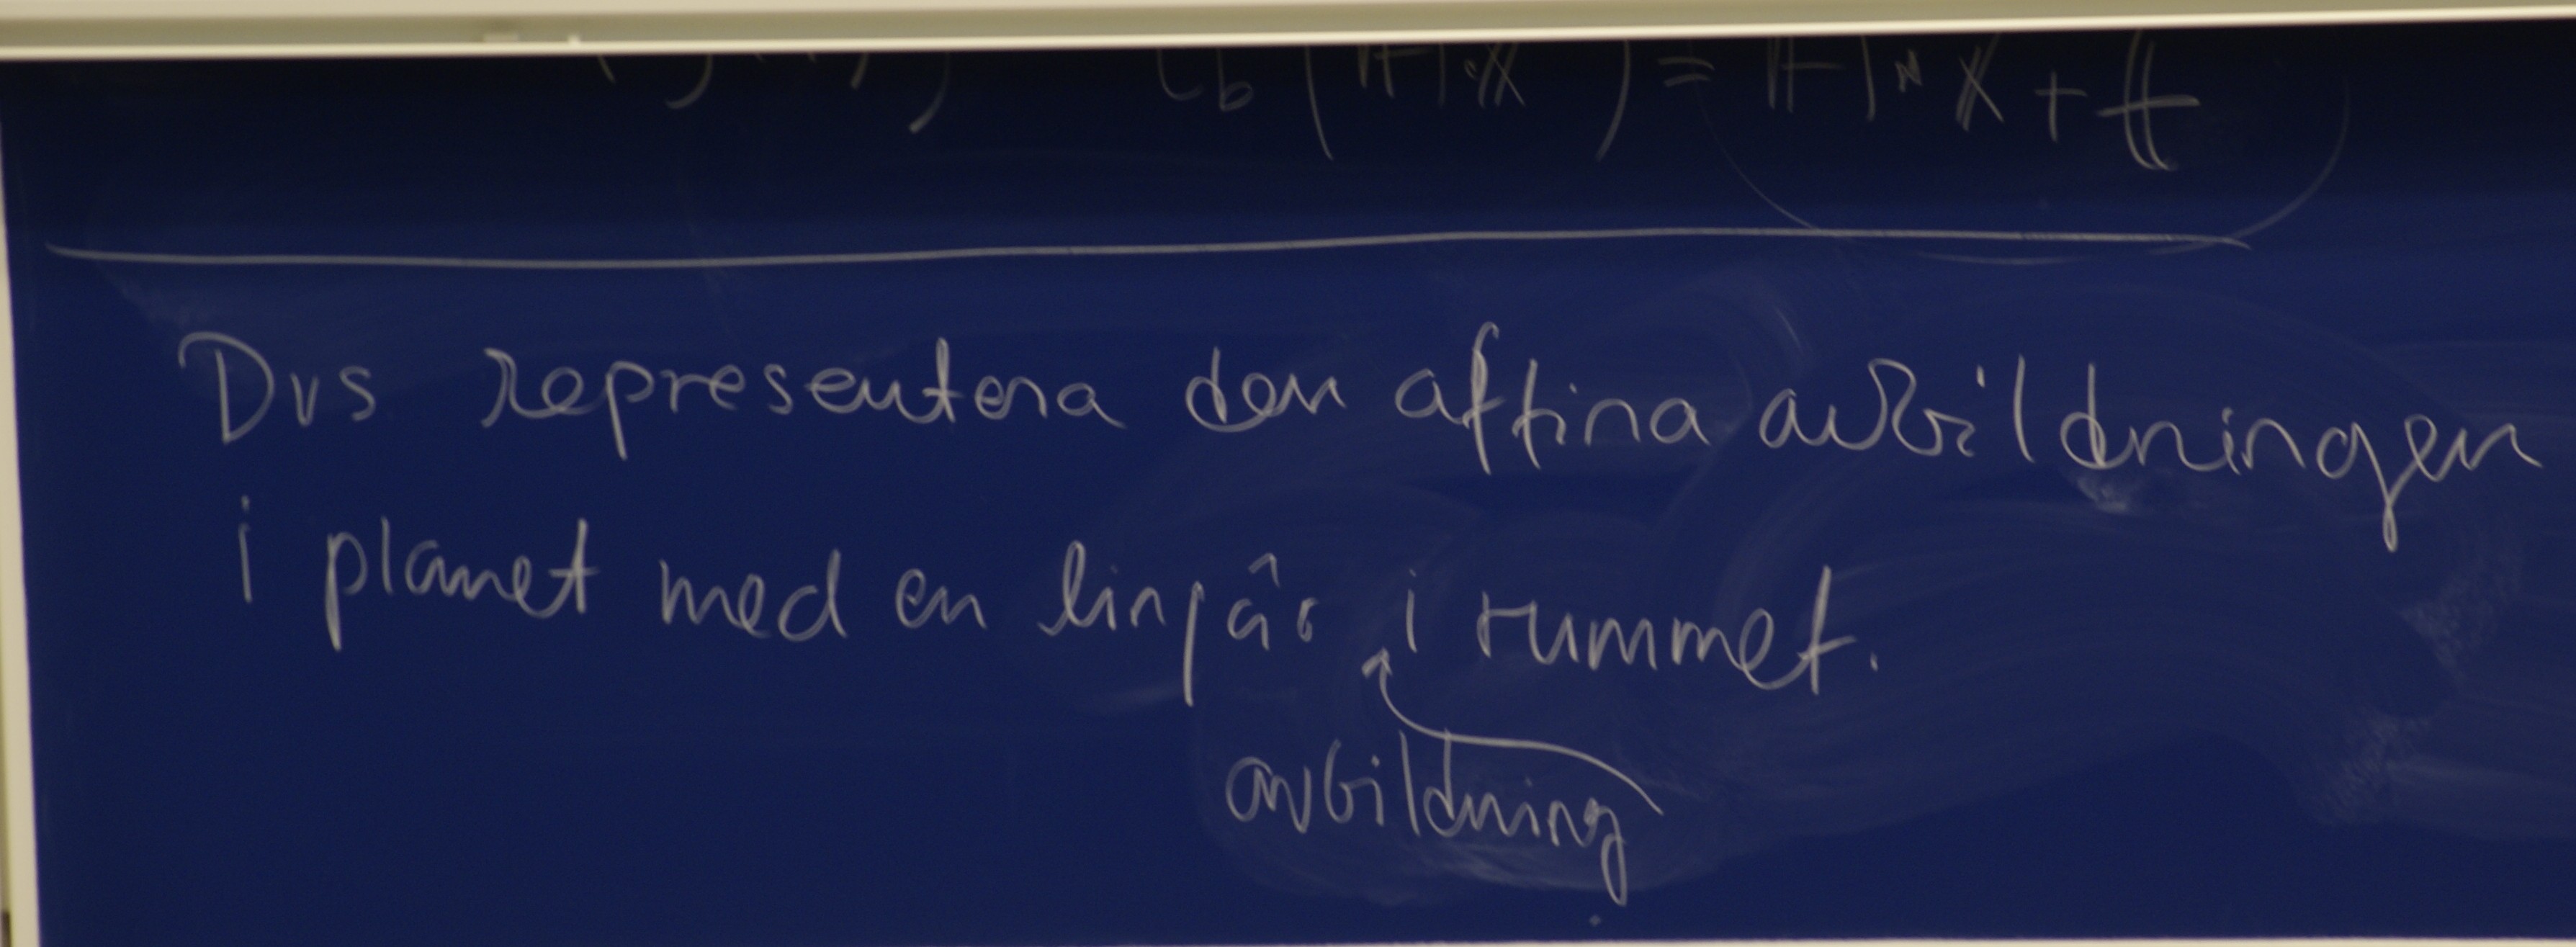 = A·x + t
Dvs representera den affina avbildningen
i planet med en linjär i rummet.
avbildning